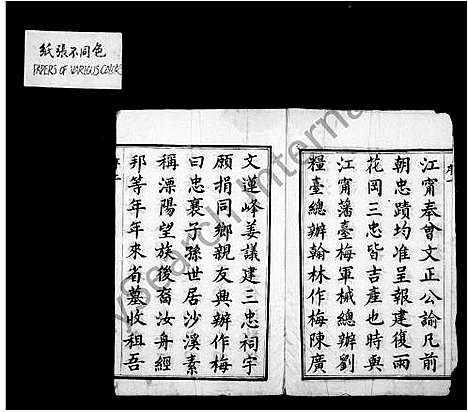 紙張不同色
PAPERS OF VARIOUS COLORS
江甯奉曾文正公諭凡前
朝忠蹟均准呈報建復雨
花岡三忠皆吉產也時與
江甯藩臺梅軍械總辦劉
糧臺總辦翰林作梅陳廣
文蓮峰姜議建三忠祠宇
願捐同鄉親友興辦作梅
曰忠襄子孫世居沙溪素
稱溧陽望族後裔汝舟經
邦等年年來省墓收租吾